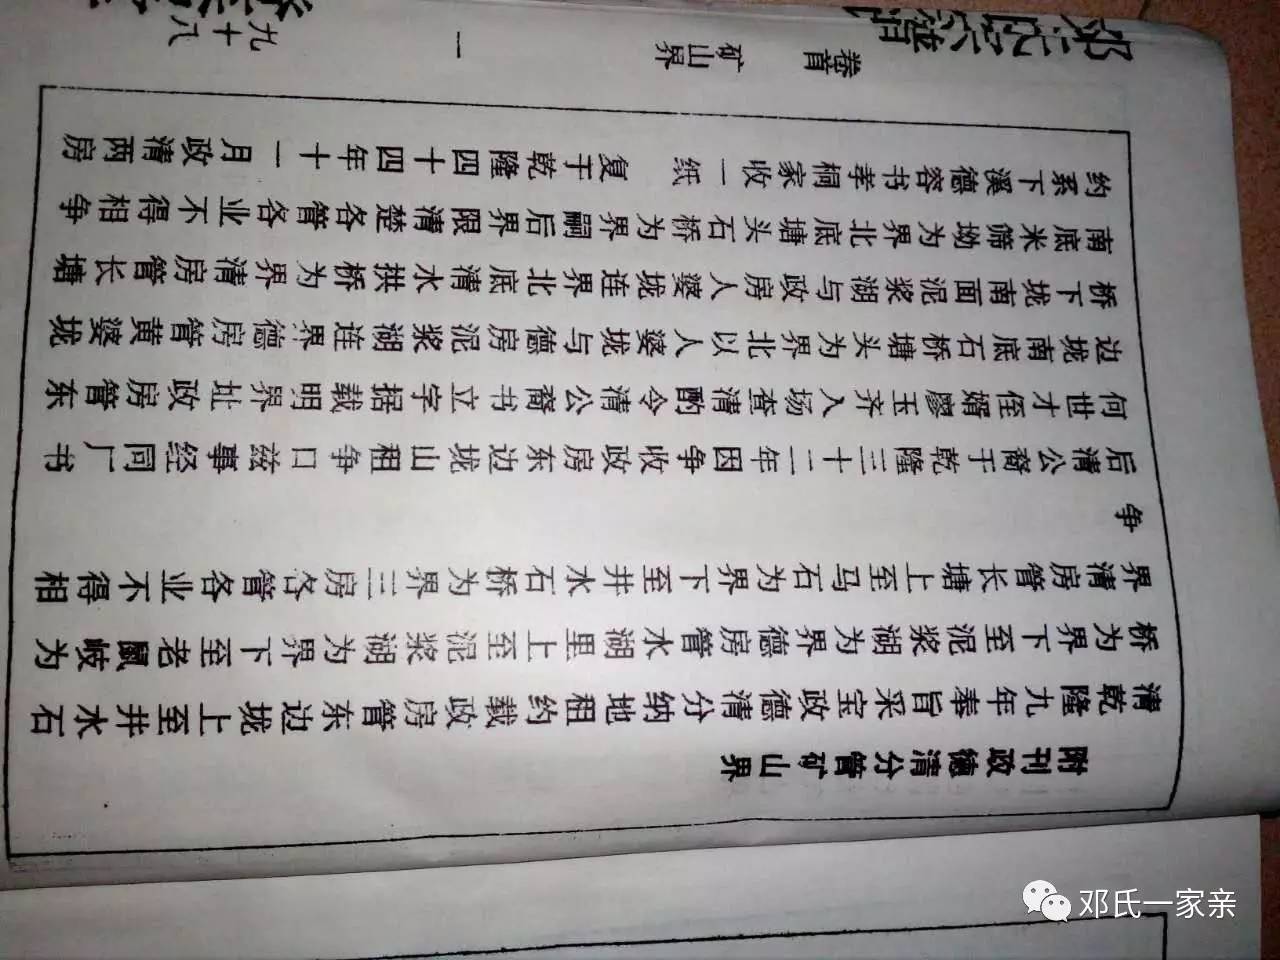 邓氏宗谱
卷首
矿山界
一
九十八
附刊政德清分管矿山界
清乾隆九年奉旨采宝政德清分纳地租约载政房管东边垅上至井水石
桥为界下至泥浆湖为界德房管水湖里上至泥浆湖为界下至老鼠岐为
界清房管长塘上至马石为界下至井水石桥为界三房各管各业不得相
争
后清公裔于乾隆三十二年因争收政房东边垅山租争口兹事经同厂书
何世才侄婿廖玉齐入场查清酌令清公裔书立字据载明界址政房管东
边垅南底石桥塘头为界北以人婆垅与德房泥浆湖连界德房管黄婆垅
桥下垅南面泥浆湖与政房人婆垅连界北底清水拱桥为界清房管长塘
南底米筛坳为界北底塘头石桥为界嗣后界限清楚各管各业不得相争
约系下溪德容书孝桐家收一纸 复于乾隆四十四年十一月政清两房
邓氏一家亲